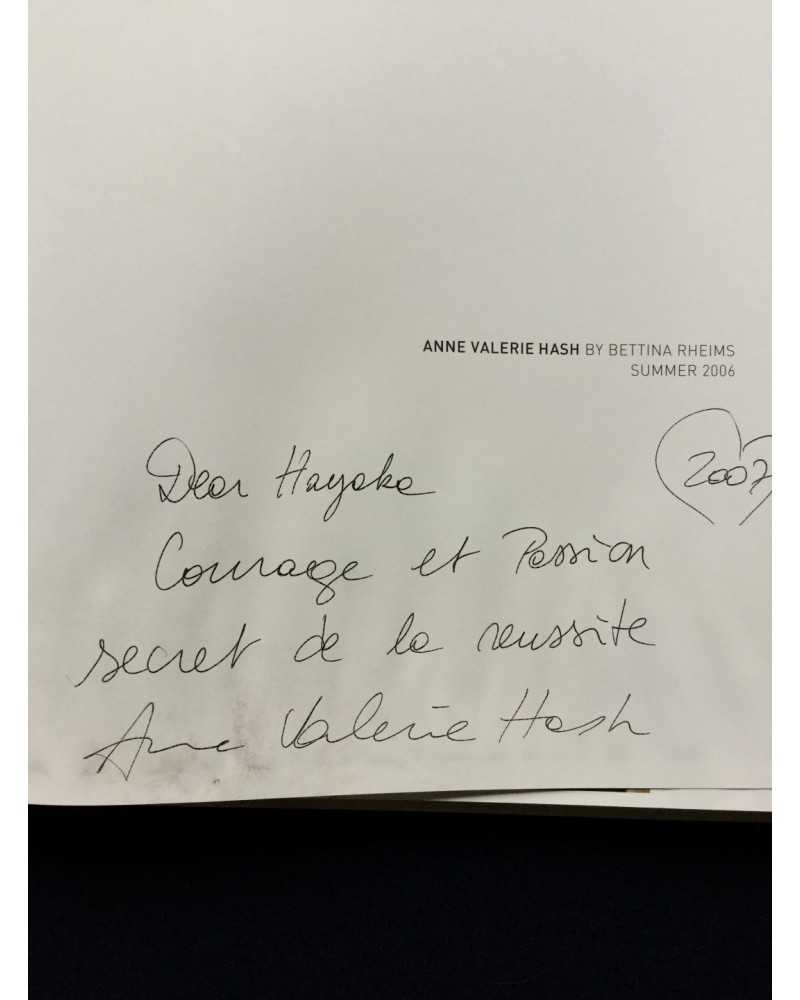 ANNE VALERIE HASH BY BETTINA RHEIMS
SUMMER 2006
2007
Dear Hayaka
Courage et Passion
secret de la reussite
Anne Valerie Hash